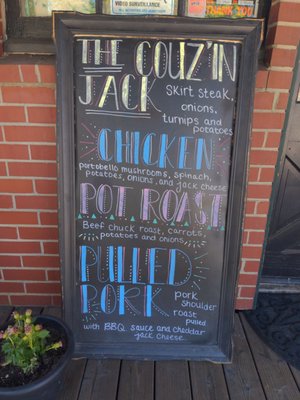 VIDEO SURVEILLANCE
THE COUZ'IN
JACK
SKirt steak,
onions,
turnips and
potatoes
CHICKEN
portobello mushrooms, spinach,
potatoes, onions, and jack cheese
POT ROAST
Beef chuck roast, carrots,
potatoes and onions
PULLED
PORK
pork
shoulder
roast
pulled
with BBQ sauce and cheddar
jack cheese